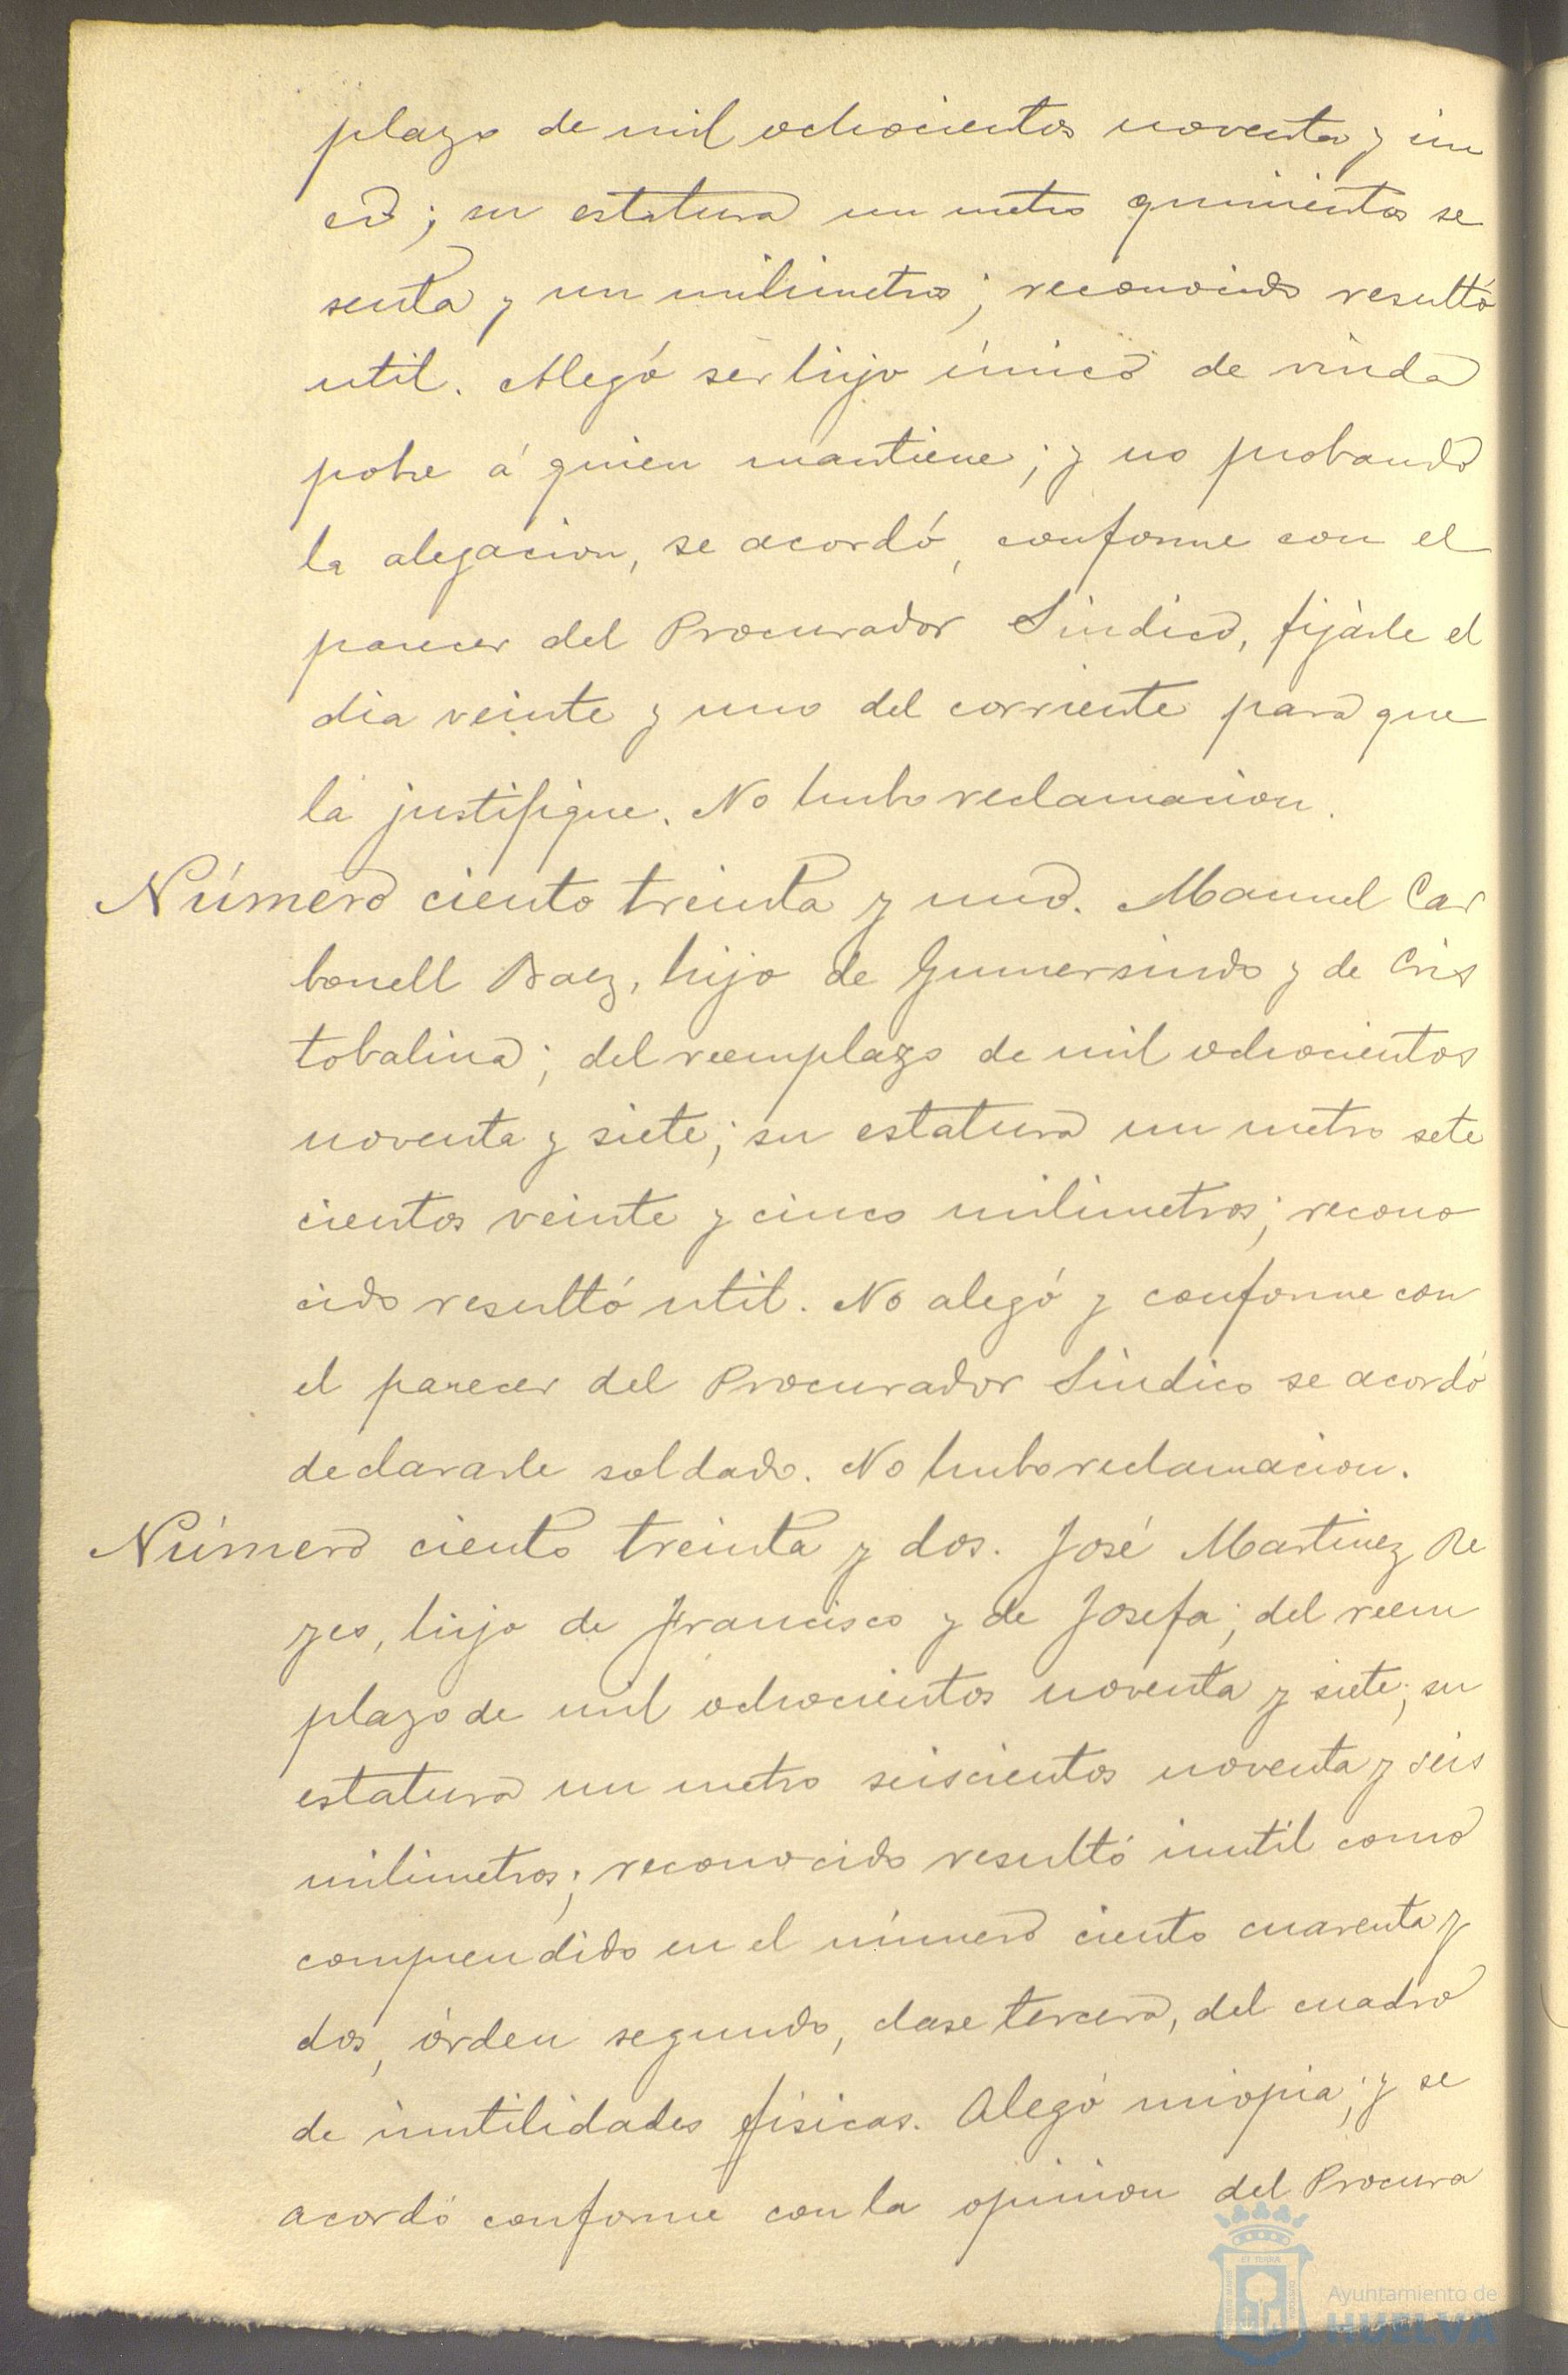 plazo de mil ochocientos noventa y cin
co; su estatura un metro quinientos se
senta y un milimetros; reconocido resultó
util. Alegó ser hijo único de viuda
pobre á quien mantiene; y no probando
la alegacion, se acordó, conforme con el
parecer del Procurador Sindico, fijarle el
dia veinte y uno del corriente para que
la justifique. No hubo reclamacion.
Número ciento treinta y uno. Manuel Car
bonell Baez, hijo de Gumersindo y de Cris
tobalina; del reemplazo de mil ochocientos
noventa y siete; su estatura un metro sete
cientos veinte y cinco milimetros; recono
cido resultó util. No alegó y conforme con
el parecer del Procurador Sindico se acordó
declararle soldado. No hubo reclamacion.
Número ciento treinta y dos. José Martinez Re
yes, hijo de Francisco y de Josefa; del reem
plazo de mil ochocientos noventa y siete; su
estatura un metro seiscientos noventa y seis
milimetros; reconocido resultó inutil como
comprendido en el número ciento cuarenta y
dos, órden segundo, clase tercera, del cuadro
de inutilidades fisicas. Alegó miopia; y se
acordó conforme con la opinion del Procura
Ayuntamiento de
HUELVA